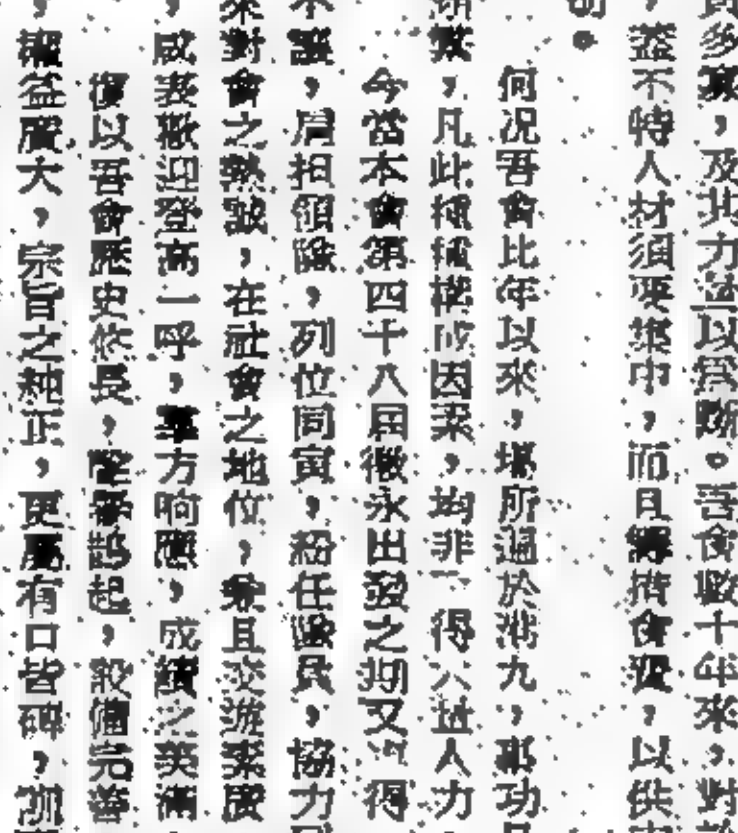 多寡，及其力量以為斷。吾會數十年來，對
，蓋不特人材須要集中，而且籌措會費，以供
何況吾會比年以來，場所遍於港九，事功
，凡此種種構成因素，均非一得人力
今當本會第四十八屆徵求出發之期又
，肩担領隊，列位同寅，紛任隊員，協力
來對會之熱誠，在社會之地位，兼且交游素廣
，咸表歡迎登高一呼，羣方响應，成績之美滿
復以吾會歷史悠長，聲譽鵲起，設備完善
，權益廣大，宗旨之純正，更屬有口皆碑，